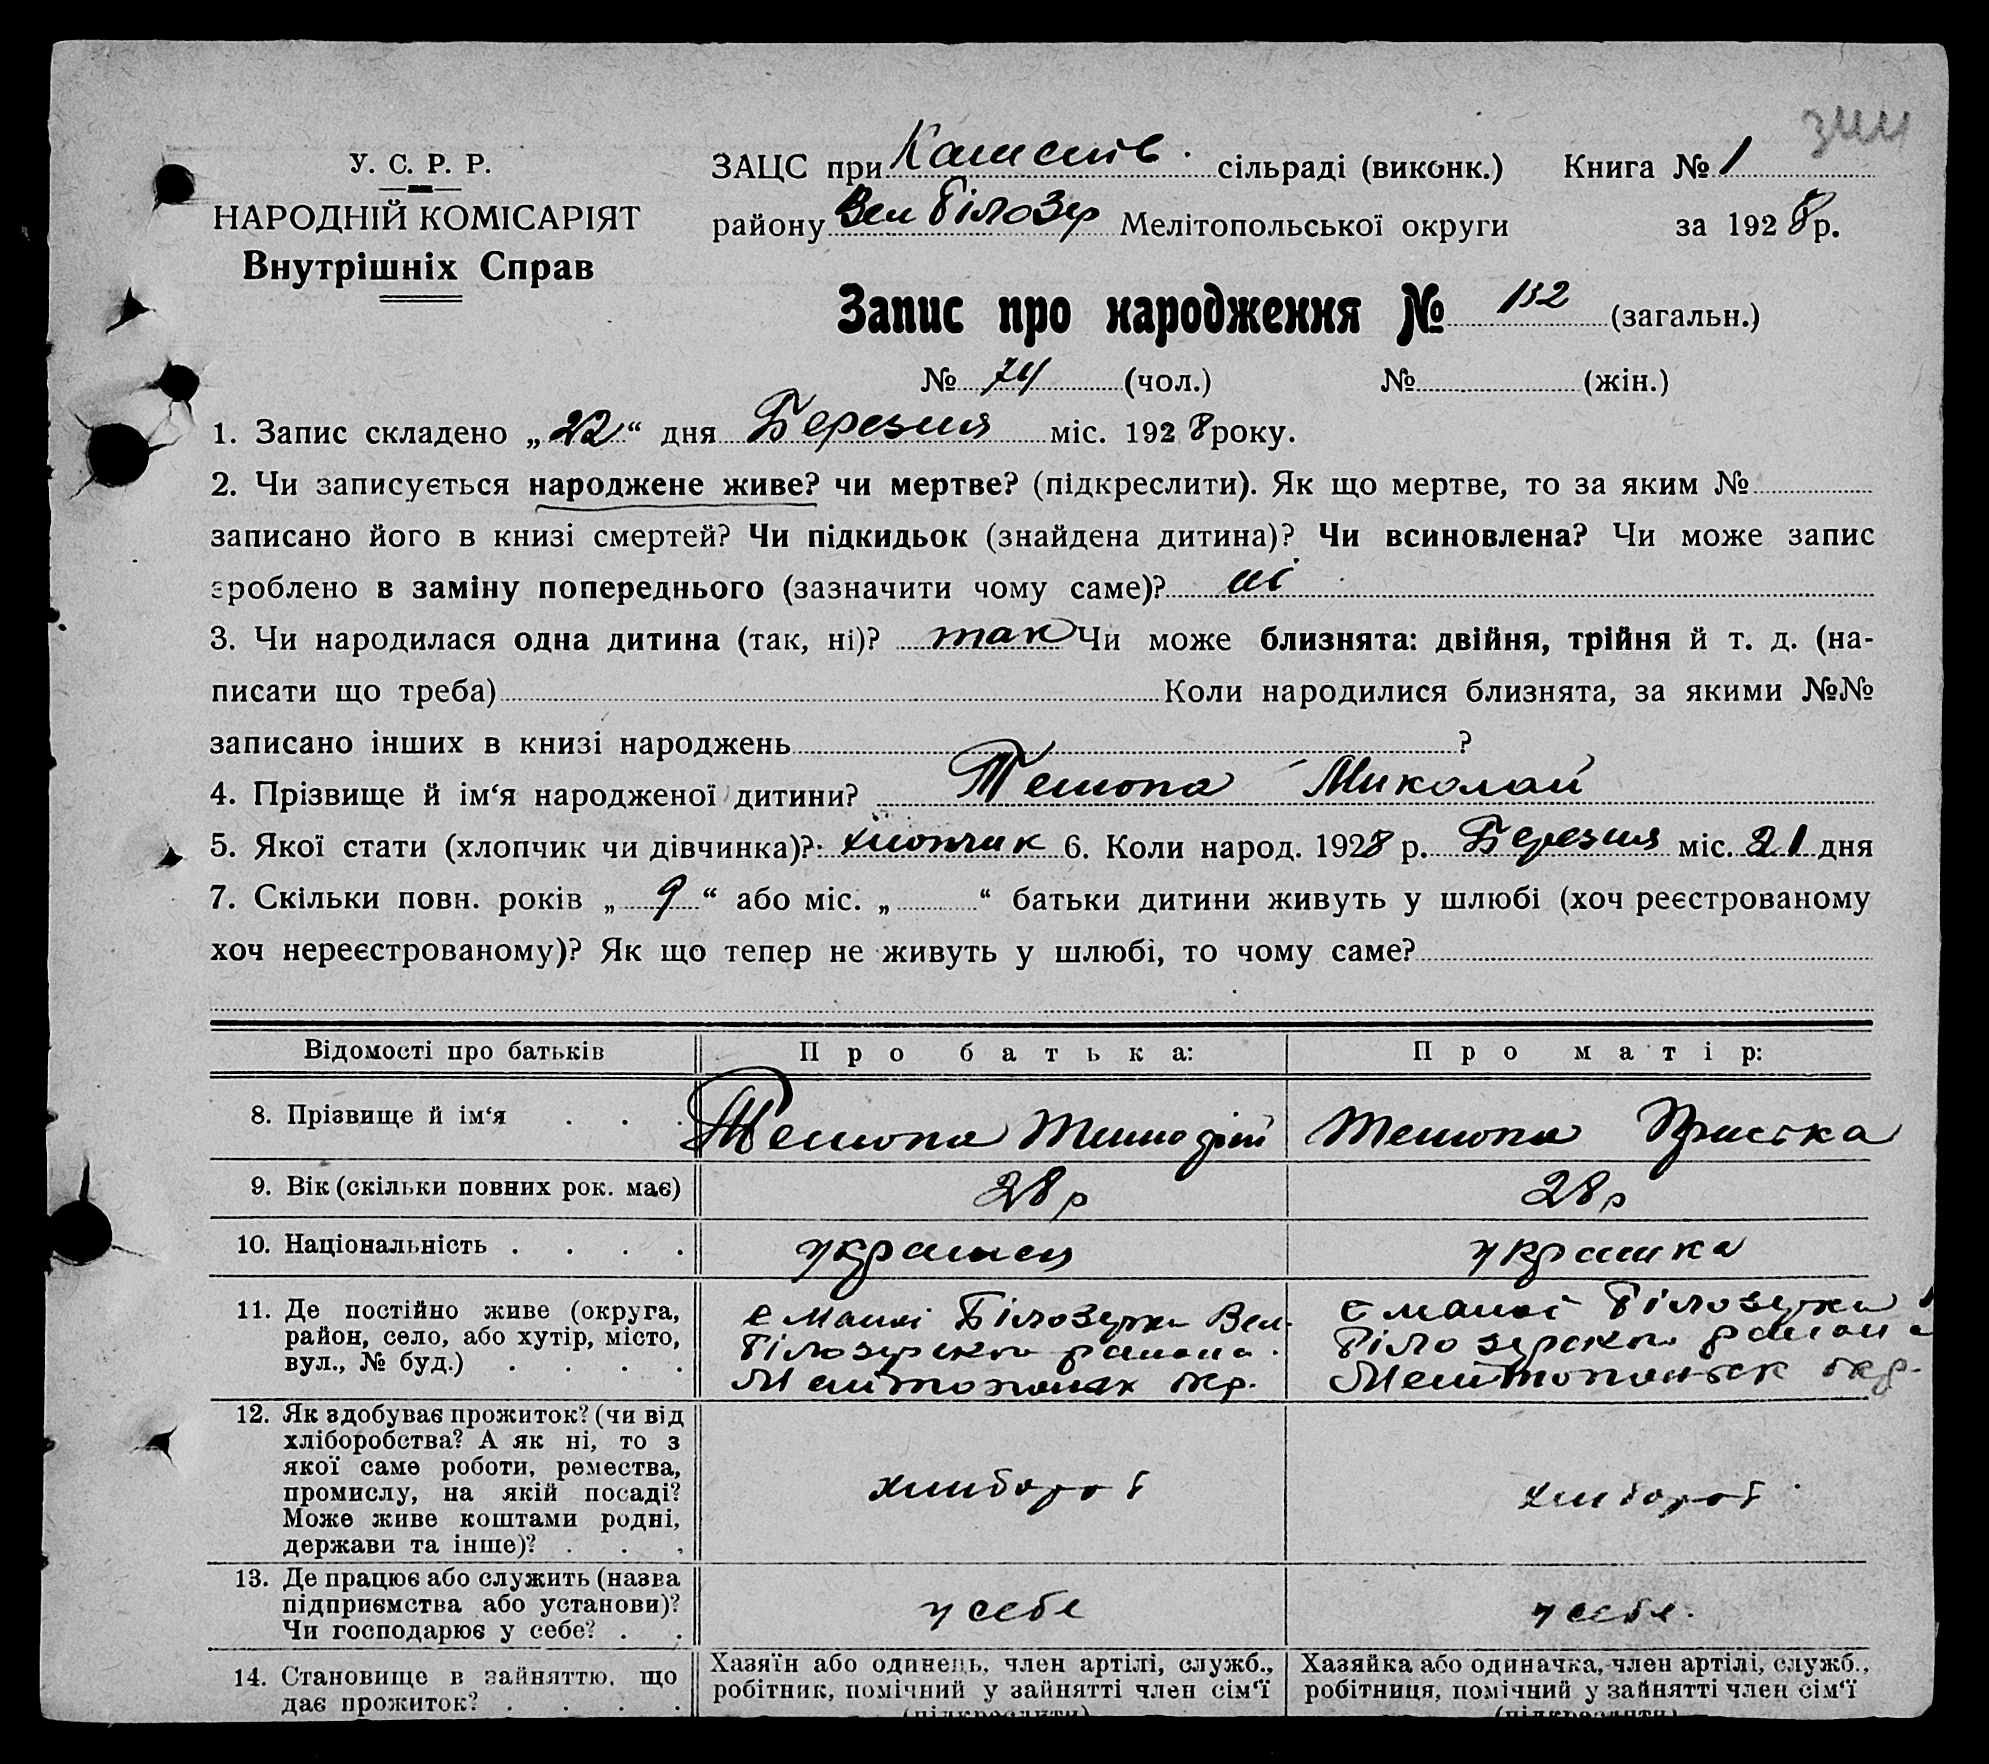 344
У. С. Р. Р.
НАРОДНІЙ КОМІСАРІЯТ
Внутрішніх Справ
ЗАЦС при сільраді (виконк.) Книга № 1
району Вел Білозер Мелітопольської округи за 1928 р.
Запис про народження № 132 (загальн.)
№ 74 (чол.) № (жін.)
1. Запис складено „22“ дня Березня міс. 1928 року.
2. Чи записується народжене живе? чи мертве? (підкреслити). Як що мертве, то за яким №
записано його в книзі смертей? Чи підкидьок (знайдена дитина)? Чи всиновлена? Чи може запис
зроблено в заміну попереднього (зазначити чому саме)? ні
3. Чи народилася одна дитина (так, ні)? так Чи може близнята: двійня, трійня й т. д. (на-
писати що треба) Коли народилися близнята, за якими №№
записано інших в книзі народжень ?
4. Прізвище й ім‘я народженої дитини? Миколай
5. Якої стати (хлопчик чи дівчинка)?: хлопчик 6. Коли народ. 1928 р. Березня міс. 21 дня
7. Скільки повн. років „9“ або міс. „ “ батьки дитини живуть у шлюбі (хоч реєстрованому
хоч нереєстрованому)? Як що тепер не живуть у шлюбі, то чому саме?
Відомості про батьків Про батька: Про матір:
8. Прізвище й ім‘я . . . Тимофій Христка
9. Вік (скільки повних рок. має) 28 р 28 р
10. Національність . . . . українец українка
11. Де постійно живе (округа,
район, село, або хутір, місто,
вул., № буд.) . . . .
Білозерки Вел.
Білозерского района.
Мелитопольск окр.
Білозерки
Білозерского района
Мелитопольск окр.
12. Як здобуває прожиток? (чи від
хліборобства? А як ні, то з
якої саме роботи, ремества,
промислу, на якій посаді?
Може живе коштами родні,
держави та інше)? . . .
хлибороб хлибороб
13. Де працює або служить (назва
підприємства або установи)?
Чи господарює у себе? . .
у себе у себе.
14. Становище в зайняттю, що
дає прожиток? . . . .
Хазяїн або одинець, член артілі, служб.,
робітник, помічний у зайнятті член сім‘ї
(підкреслити)
Хазяйка або одиначка, член артілі, служб.,
робітниця, помічний у зайнятті член сім‘ї
(підкреслити)